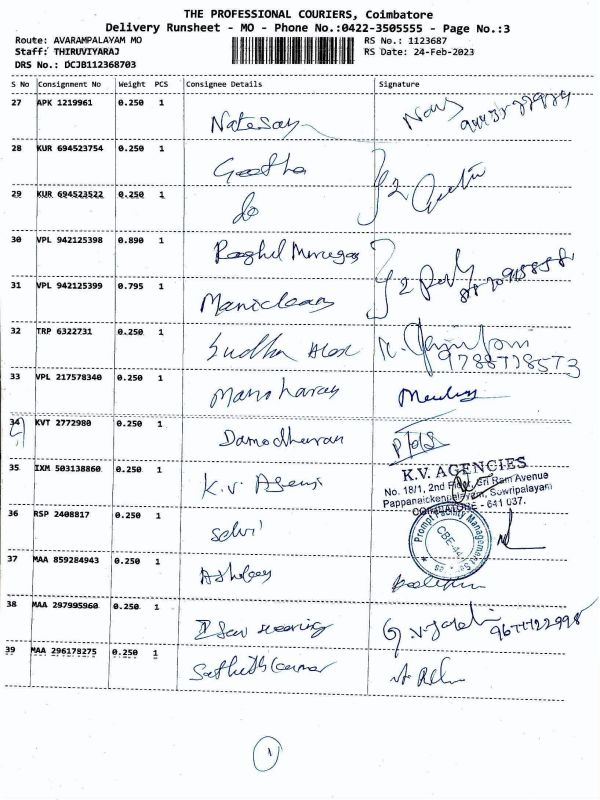 THE PROFESSIONAL COURIERS, Coimbatore
Delivery Runsheet - MO - Phone No.:0422-3505555 - Page No.:3
Route: AVARAMPALAYAM MO
RS No.: 1123687
Staff: THIRUVIYARAJ
RS Date: 24-Feb-2023
DRS No.: DCJB112368703
S No Consignment No Weight PCS Consignee Details Signature
27 APK 1219961 0.250 1 Natesan
28 KUR 694523754 0.250 1 Geetha
29 KUR 694523522 0.250 1 do
30 VPL 942125398 0.890 1
31 VPL 942125399 0.795 1
32 TRP 6322731 0.250 1 Sudha
9788778573
33 VPL 217578340 0.250 1 Manoharan
34 KVT 2772980 0.250 1 Damodharan
35 IXM 503138860 0.250 1 K.V. Agens
K.V. AGENCIES
No. 18/1, 2nd Floor, Sri Ram Avenue
Pappanaickenpalayam, Sowripalayam
COIMBATORE - 641 037.
36 RSP 2408817 0.250 1 Selvi
Prompt Facility Management
CBE-44
37 MAA 859284943 0.250 1
38 MAA 297995960 0.250 1
39 MAA 296178275 0.250 1 Sathishkumar
1